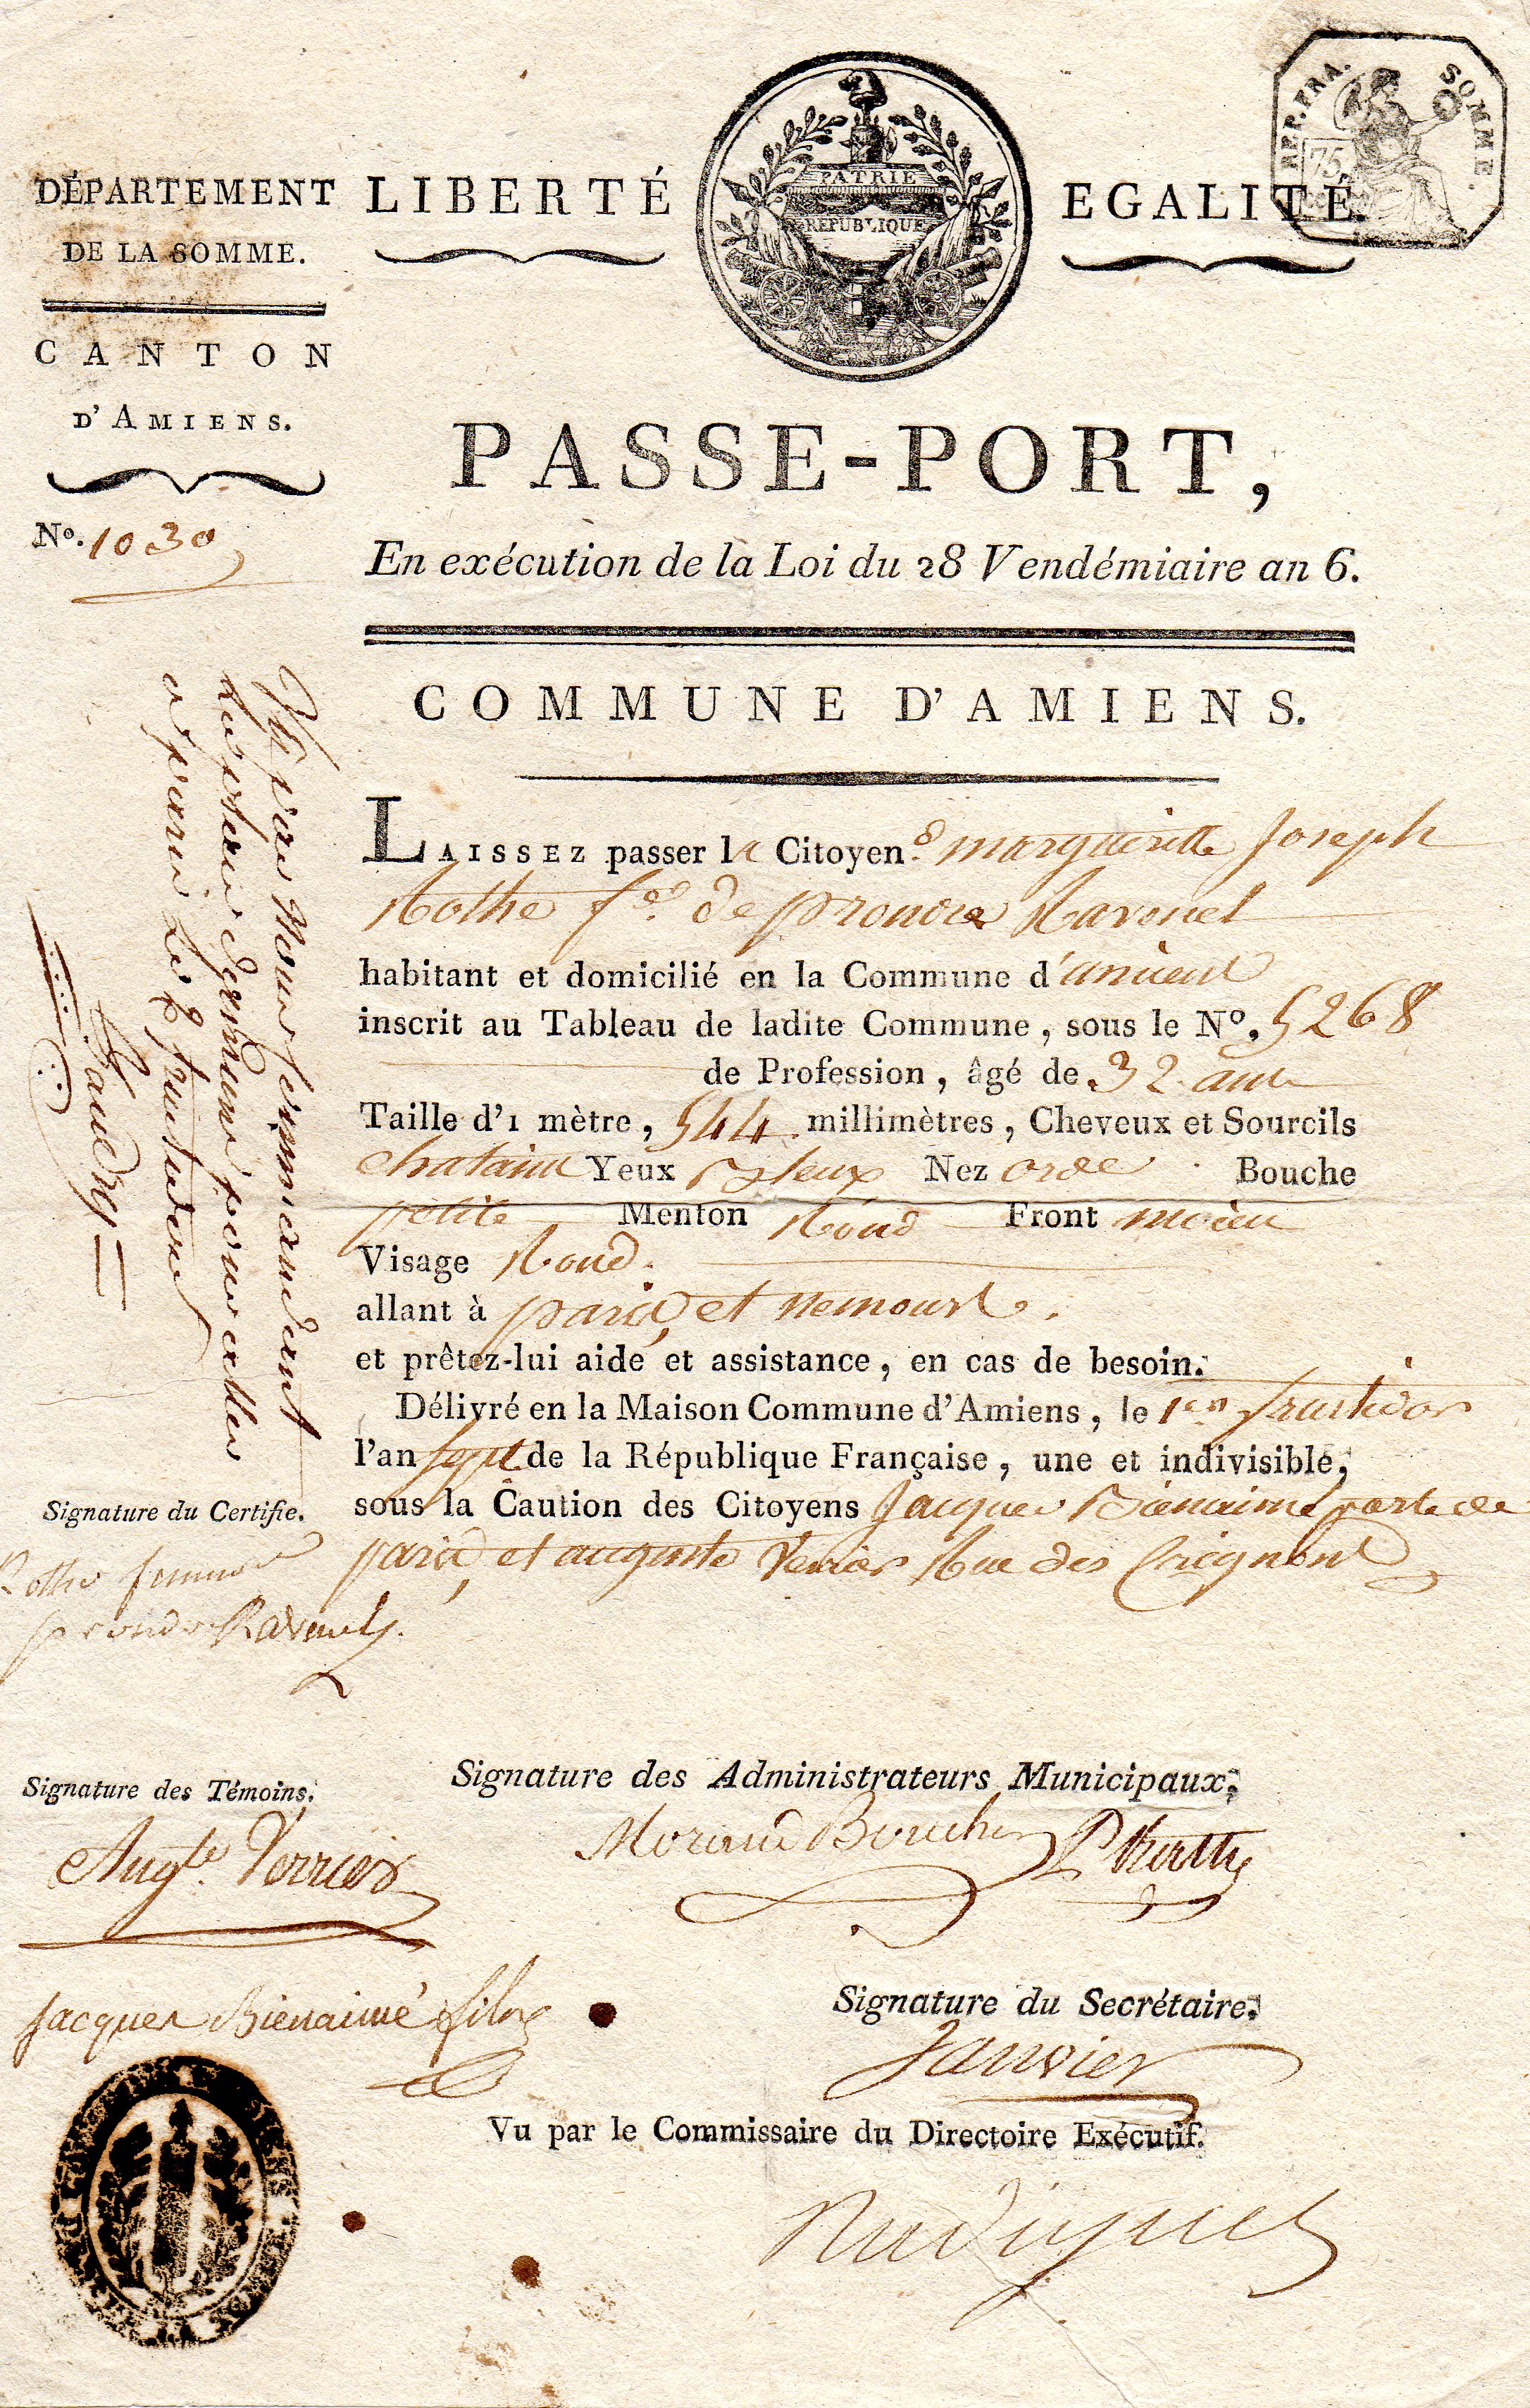 DÉPARTEMENT
DE LA SOMME.
CANTON
D'AMIENS.
Nº. 1030
LIBERTÉ
PATRIE
RÉPUBLIQUE
EGALITÉ.
REP. FRA.
SOMME.
75
PASSE-PORT,
En exécution de la Loi du 28 Vendémiaire an 6.
COMMUNE D'AMIENS.
LAISSEZ passer la Citoyen.e marguerite Joseph
Rothe fe. de Ravenel
habitant et domicilié en la Commune d'amiens
inscrit au Tableau de ladite Commune, sous le Nº. 5268
de Profession, âgé de 32 ans
Taille d'1 mètre, 544 millimètres, Cheveux et Sourcils
chatains Yeux Bleux Nez orde Bouche
petite Menton Rond Front moien
Visage Rond.
allant à paris et nemours.
et prêtez-lui aide et assistance, en cas de besoin.
Délivré en la Maison Commune d'Amiens, le 1er fructidor
l'an sept de la République Française, une et indivisible,
sous la Caution des Citoyens Jacques Bienaimé porte de
paris, et auguste Verrier Rue des
Vu par Nous
pour aller
a paris Le 2 fructidor
Signature du Certifié.
Rothe femme
Ravenel
Signature des Témoins.
Augte. Verrier
Jacques Bienaimé fils
Signature des Administrateurs Municipaux.
Morand Boucher
Signature du Secrétaire.
Janvier
Vu par le Commissaire du Directoire Exécutif.